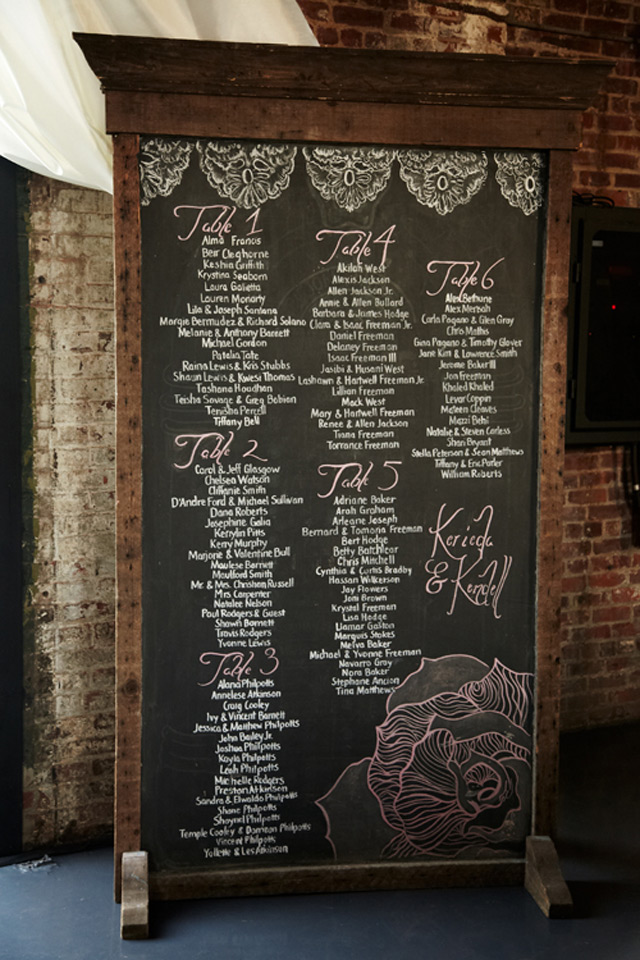 Table 1
Alma Francis
Beir Cleghorne
Keshia Griffith
Krystina Seaborn
Laura Galietta
Lauren Moriarty
Lila & Joseph Santana
Margie Bermudez & Richard Solano
Melanie & Anthony Barrett
Michael Gordon
Patalia Tate
Raina Lewis & Kris Stubbs
Shaun Lewis & Kwesi Thomas
Tashana Houdhan
Teisha Savage & Greg Bobian
Tenisha Percell
Tiffany Bell
Table 2
Carol & Jeff Glasgow
Chelsea Watson
Cliffanie Smith
D'Andre Ford & Michael Sullivan
Dana Roberts
Josephine Galia
Kerrylin Pitts
Kerry Murphy
Marjorie & Valentine Bull
Maulese Barnett
Maulford Smith
Mr. & Mrs. Christian Russell
Mrs Carpenter
Natalee Nelson
Paul Rodgers & Guest
Shawn Barnett
Travis Rodgers
Yvonne Lewis
Table 3
Alana Philpotts
Annelese Atkinson
Craig Cooley
Ivy & Vincent Barnett
Jessica & Matthew Philpotts
John Bailey Jr.
Joshua Philpotts
Kayla Philpotts
Leah Philpotts
Michelle Rodgers
Preston Atkinson
Sandra & Elwaldo Philpotts
Shane Philpotts
Shaynel Philpotts
Temple Cooley & Damian Philpotts
Vincent Philpotts
Yollette & Les Atkinson
Table 4
Akilah West
Alexis Jackson
Allen Jackson Jr.
Annie & Allen Bullard
Barbara & James Hodge
Clara & Isaac Freeman Jr.
Daniel Freeman
Delaney Freeman
Isaac Freeman III
Jasbi & Husani West
Lashawn & Hartwell Freeman Jr.
Lillian Freeman
Mack West
Mary & Hartwell Freeman
Renee & Allen Jackson
Tiana Freeman
Torrance Freeman
Table 5
Adriane Baker
Arah Graham
Arleane Joseph
Bernard & Tamaria Freeman
Bert Hodge
Betty Batchlear
Chris Mitchell
Cynthia & Curtis Bradby
Hassan Wilkerson
Jay Flowers
Joni Brown
Krystal Freeman
Lisa Hodge
Llamar Gaston
Marquis Stokes
Melva Baker
Michael & Yvonne Freeman
Navarro Gray
Nora Baker
Stephane Ancion
Tina Matthews
Table 6
Alex Bethune
Alex Mersah
Carla Pagano & Glen Gray
Chris Mathis
Gina Pagano & Timothy Glover
Jane Kim & Lawrence Smith
Jerome Baker III
Jon Freeman
Khaled Khaled
Levar Coppin
Mateen Cleaves
Mazzi Bebi
Natalie & Steven Carless
Shari Bryant
Stella Peterson & Sean Matthews
Tiffany & Eric Parker
William Roberts
Kerieda
& Kendell